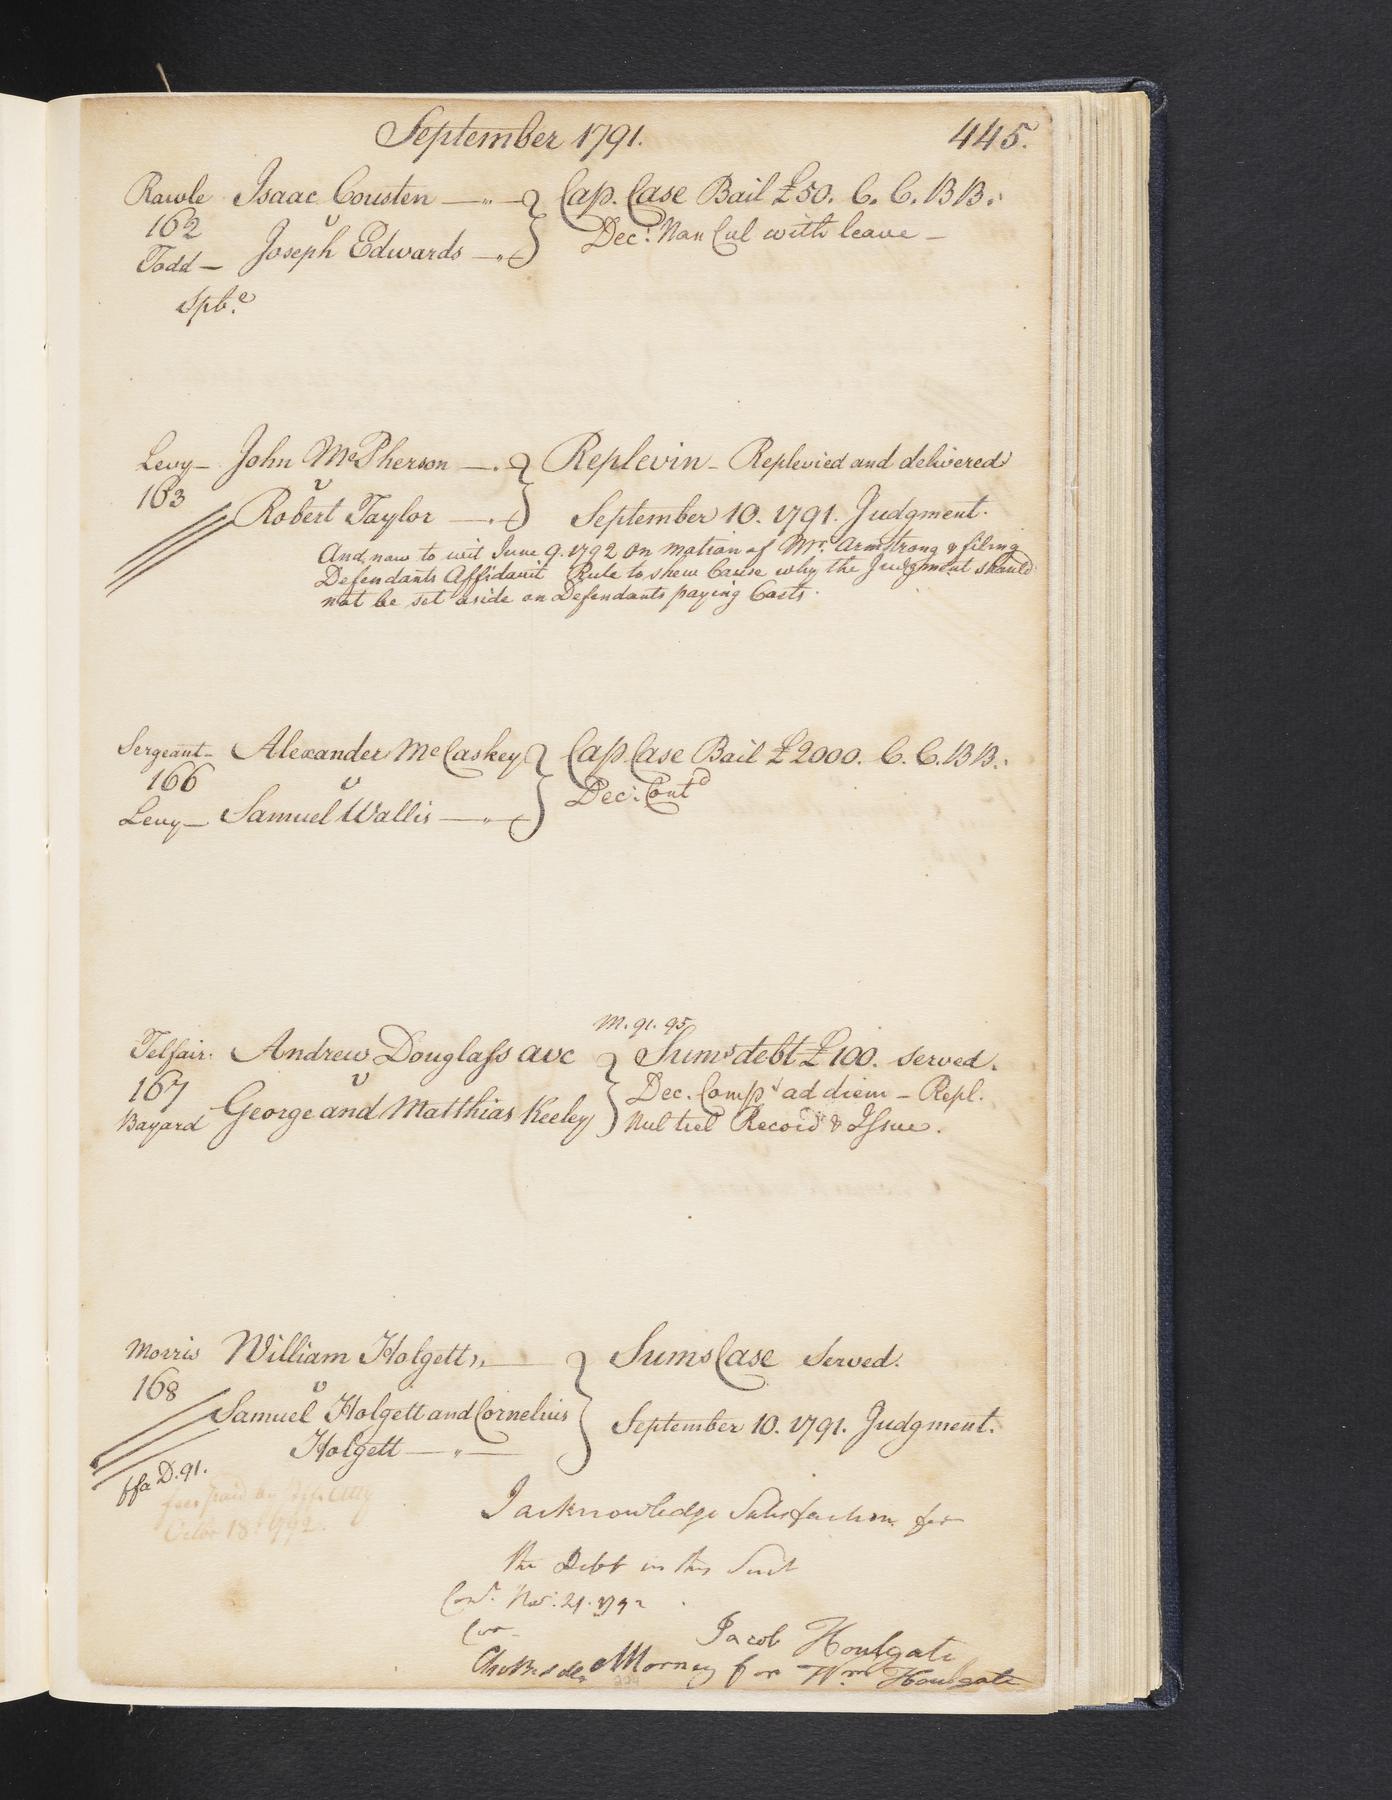 September 1791. 445.
Rawle Isaac Cousten Cap. Case Bail £50. C. C. B B.
162 v
Todd Joseph Edwards Dec: Non Cul with leave
Spt.e
Levy John McPherson Replevin Replevied and delivered
163 v
Robert Taylor September 10. 1791. Judgment.
And now to wit June 9. 1792 on motion of Mr. Armstrong & filing
Defendants Affidavit Rule to shew Cause why the Judgment should
not be set aside on Defendants paying Costs.
Sergeant Alexander McCaskey Cap. Case Bail £2000. C. C. B B.
166 v
Levy Samuel Wallis Dec: Contd
M. 91. 95
Telfair. Andrew Douglass Sums debt £100. served.
167 v Dec. Comp ad diem Repl.
Bayard George and Matthias Keeley Nul tiel Record & Issue.
Morris William Holgett Sums Case Served.
168 v
Samuel Holgett and Cornelius September 10. 1791. Judgment.
Holgett
ffa D. 91.
fees paid by
Octor 18 1792.
I acknowledge Satisfaction for
the Debt in this Suit
Nov. 21. 1792
Cor
Jacob Houlgate
attorney for Wm Houlgate